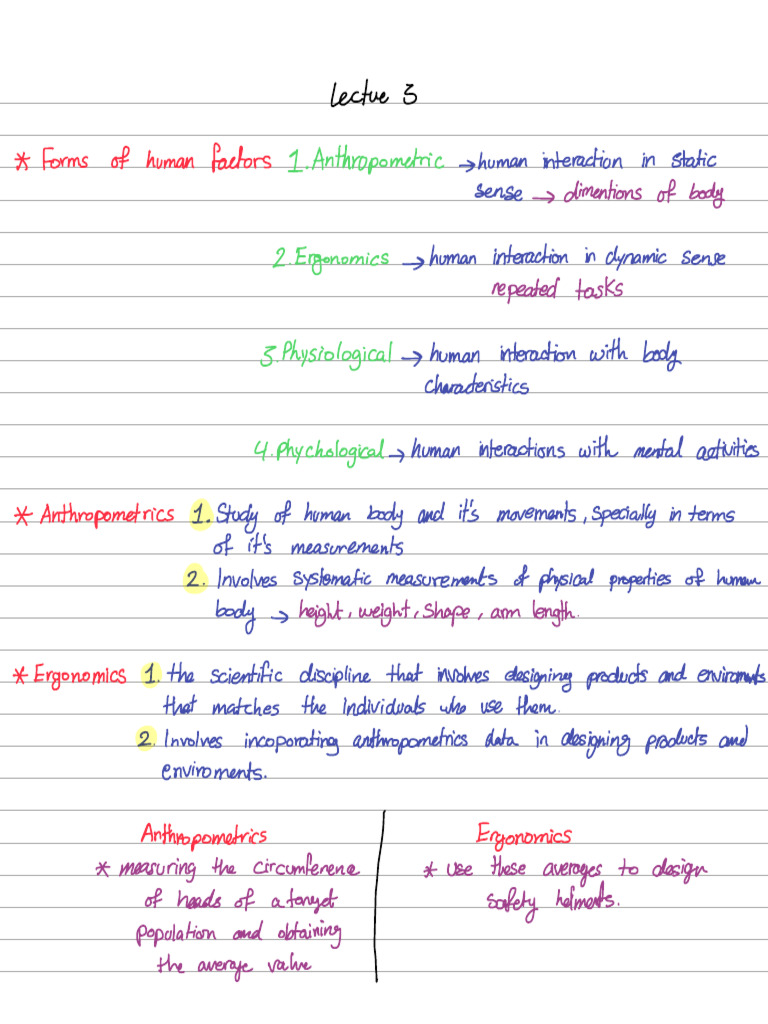 Lectue 3
* Forms of human factors 1. Anthropometric → human interaction in static
sense → dimentions of body
2. Ergonomics → human interaction in dynamic sense
repeated tasks
3. Physiological → human interaction with body
characteristics
4. Phychological → human interactions with mental activities
* Anthropometrics 1. Study of human body and it's movements, Specially in terms
of it's measurements
2. Involves systematic measurements of physical properties of human
body → height, weight, shape, arm length.
* Ergonomics 1. the scientific discipline that involves designing products and enviroments
that matches the individuals who use them.
2. Involves incoporating anthropometrics data in designing products and
enviroments.
Anthropometrics
* measuring the circumference
of heads of a target
population and obtaining
the average value
Ergonomics
* use these averages to design
safety helments.